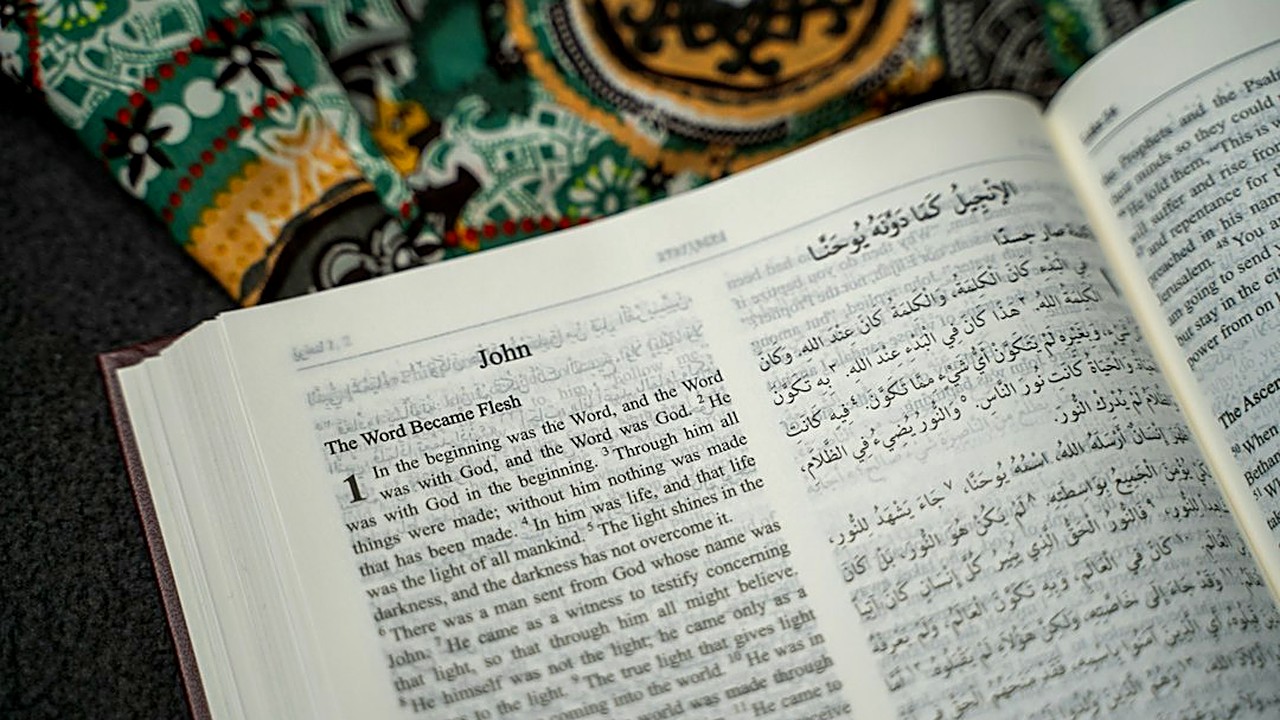 John
The Word Became Flesh
1 In the beginning was the Word, and the Word
was with God, and the Word was God. 2 He
was with God in the beginning. 3 Through him all
things were made; without him nothing was made
that has been made. 4 In him was life, and that life
was the light of all mankind. 5 The light shines in the
darkness, and the darkness has not overcome it.
6 There was a man sent from God whose name was
John. 7 He came as a witness to testify concerning
that light, so that through him all might believe.
8 He himself was not the light; he came only as a
to the light. 9 The true light that gives light
coming into the world. 10 He was in
world was made through
11 He came to
الإنجيل كما دوّنه يوحنّا
صار جسدًا
في البدء كان الكلمة، والكلمة كان عند الله. وكان
الكلمة الله. ٢ هذا كان في البدء عند الله. ٣ به تكوّن
وبغيره لم يتكوّن أيّ شيء ممّا تكوّن. ٤ فيه كانت
والحياة كانت نور النّاس. ٥ والنّور يضيء في الظّلام،
لم يدرك النّور.
إنسان أرسله الله، اسمه يوحنّا، ٧ جاء يشهد للنّور،
يؤمن الجميع بواسطته. ٨ لم يكن هو النّور، بل كان
للنّور. ٩ فالنّور الحقّ الّذي ينير كلّ إنسان كان آتيا
العالم. ١٠ كان في العالم، وبه تكوّن العالم، ولم يعرفه
وقد جاء إلى خاصّته، ولكنّ هؤلاء لم يقبلوه.
أي الّذين آمنوا باسمه، فقد منحهم الحقّ في
Prophets and the Psal
minds so they could
He told them, "This is
suffer and rise from
and repentance for
reached in his nam
Jerusalem. 48 You a
am going to send
but stay in the ci
power from on
The Ascen
50 When
Bethan